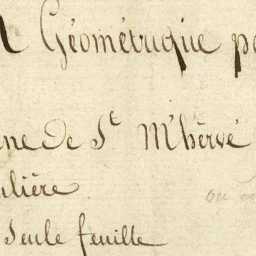 Géométrique
ne de St M'hervé
lière
Seule feuille